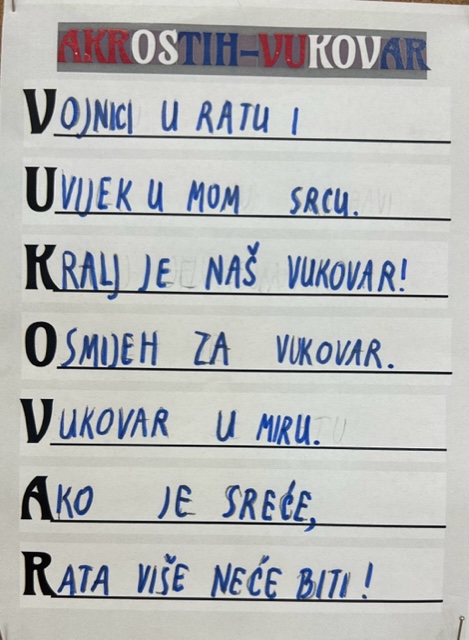 AKROSTIH-VUKOVAR
VOJNICI U RATU I
UVIJEK U MOM SRCU.
KRALJ JE NAŠ VUKOVAR!
OSMIJEH ZA VUKOVAR.
VUKOVAR U MIRU.
AKO JE SREĆE,
RATA VIŠE NEĆE BITI!